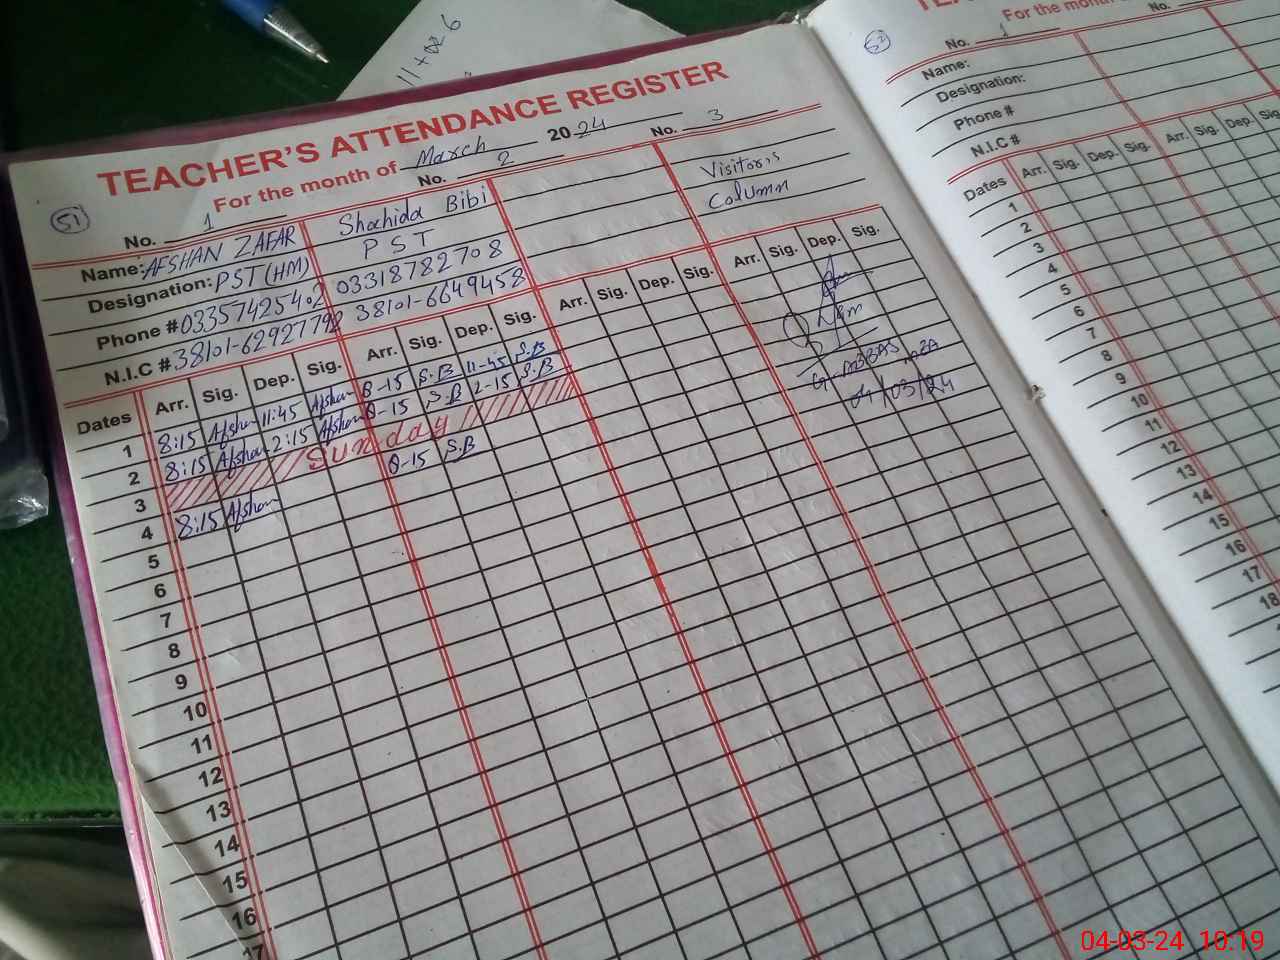 11+026
TEACHER'S ATTENDANCE REGISTER
For the month of March 2024
51
No. 1 No. 2 No. 3
Name: AFSHAN ZAFAR Shahida Bibi Visitors
Designation: PST(HM) PST Column
Phone # 03357425402 03318782708
N.I.C # 38101-62927792 38101-6649458
Dates Arr. Sig. Dep. Sig. Arr. Sig. Dep. Sig. Arr. Sig. Dep. Sig. Arr. Sig. Dep. Sig.
1 8:15 Afshan 11:45 Afshan 8-15 S.B 11-45 S.B
2 8:15 Afshan 2:15 Afshan 8-15 S.B 2-15 S.B
3 Sunday
4 8:15 Afshan 8-15 S.B
5
6
7
8
9
10
11
12
13
14
15
16
17
G. ABBAS MEA
04/03/24
52
For the month
No. 1 No.
Name:
Designation:
Phone #
N.I.C #
Dates Arr. Sig. Dep. Sig. Arr. Sig. Dep. Sig.
1
2
3
4
5
6
7
8
9
10
11
12
13
14
15
16
17
18
04-03-24 10:19